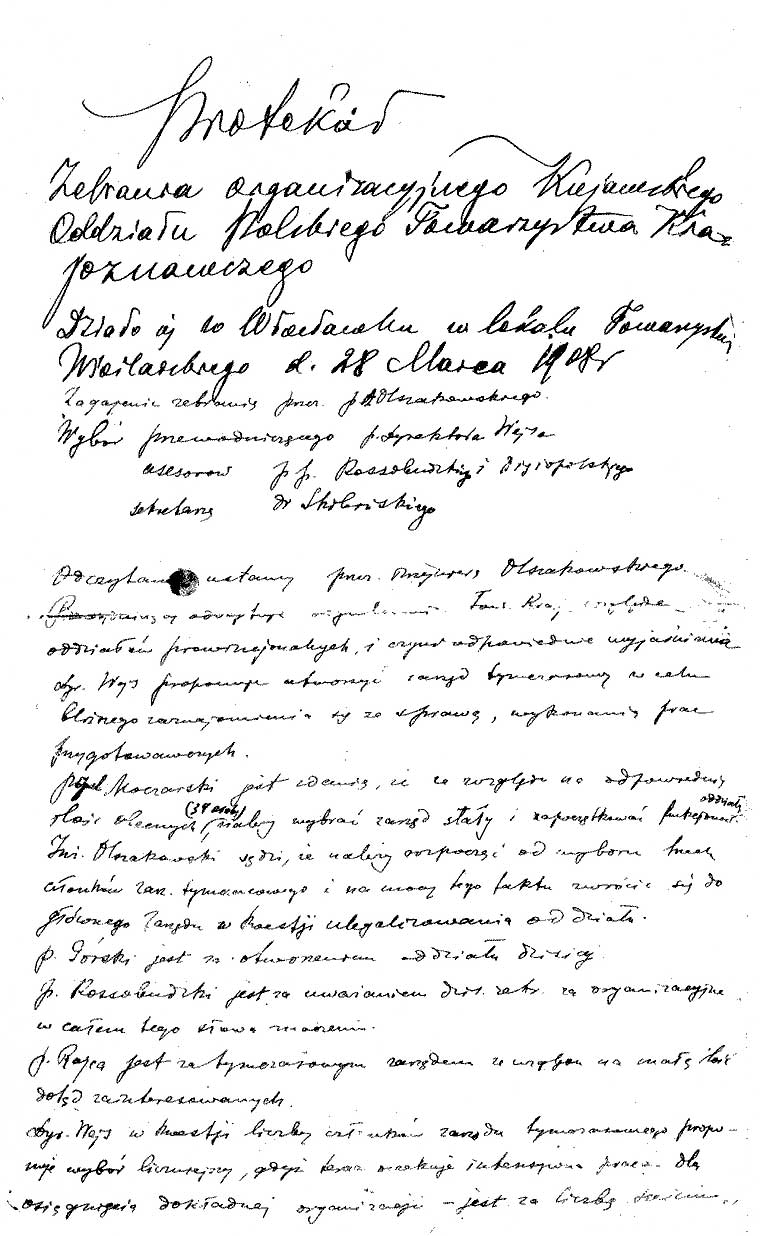 Protokół
Zebrania organizacyjnego Kujawskiego
Oddziału Polskiego Towarzystwa Kra-
joznawczego
Działo się w Włocławku w lokalu Towarzystwa
Wioślarskiego d. 28 Marca 1908 r
Zagajenie zebrania przez p. Olszakowskiego.
Wybór przewodniczącego p. dyrektora Wejsa
asesorów p. p. Rossobudzkiego i
sekretarza dr
Odczytanie ustawy przez Olszakowskiego.
Tow. Kraj.
oddziałów prowincjonalnych, i czyni odpowiednie wyjaśnienia
dyr. Wejs proponuje utworzyć zarząd tymczasowy w celu
bliższego zaznajomienia się ze sprawą, wykonania prac
przygotowawczych.
Moczarski jest zdania, że ze względu na odpowiednią
ilość obecnych (34 osoby) należy wybrać zarząd stały i zapoczątkować oddziału
Inż. Olszakowski sądzi, że należy rozpocząć od wyboru trzech
członków zarz. tymczasowego i na mocy tego faktu zwrócić się do
głównego Zarządu w kwestji ulegalizowania oddziału.
p. Górski jest za otworzeniem oddziału dzisiaj.
p. Rossobudzki jest za uważaniem dzis. zebr. za organizacyjne
w całem tego słowa znaczeniu.
p. Rajca jest za tymczasowym zarządem ze względu na małą ilość
dotąd zainteresowanych.
Dyr. Wejs w kwestji liczby członków zarządu tymczasowego propo-
nuje wybór liczniejszy, gdyż teraz oczekuje intensywna praca dla
osiągnięcia dokładnej organizacji – jest za liczbą